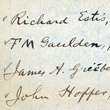 Richard Estis,
F M Gaulden,
James A. Greebe
John Hopper